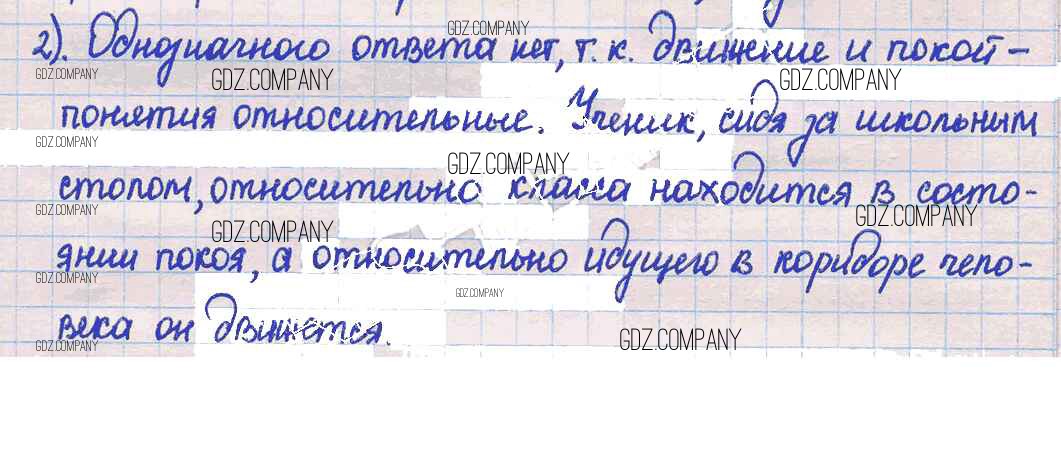 2). Однозначного ответа нет, т. к. движение и покой –
понятия относительные. Ученик, сидя за школьным
столом, относительно класса находится в состо-
янии покоя, а относительно идущего в коридоре чело-
века он движется.
GDZ.COMPANY
GDZ.COMPANY
GDZ.COMPANY
GDZ.COMPANY
GDZ.COMPANY
GDZ.COMPANY
GDZ.COMPANY
GDZ.COMPANY
GDZ.COMPANY
GDZ.COMPANY
GDZ.COMPANY
GDZ.COMPANY
GDZ.COMPANY